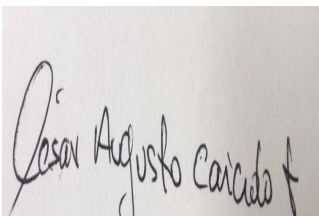 César Augusto Caicedo f